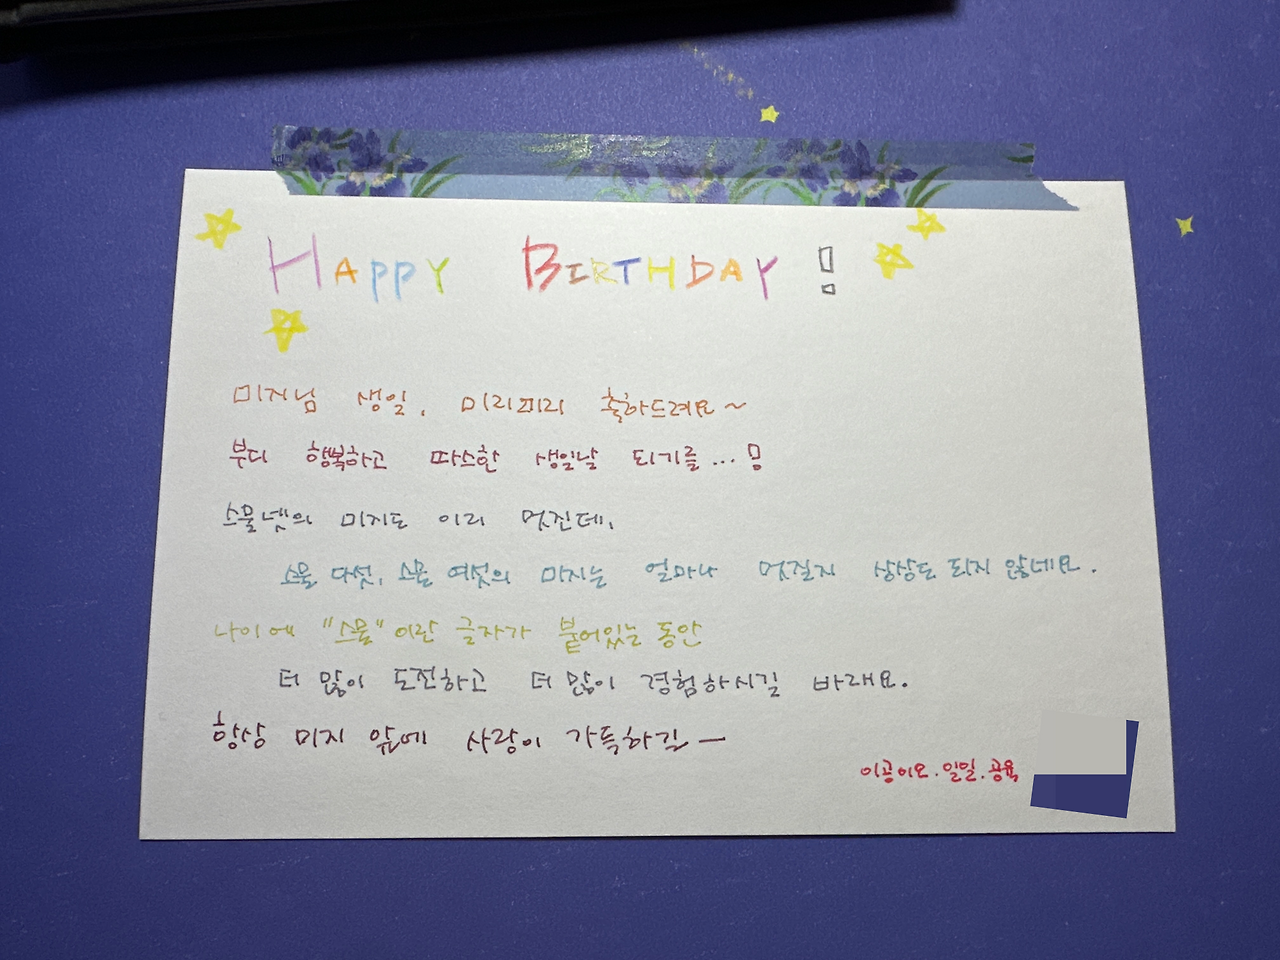 HAPPY BIRTHDAY !
미지님 생일, 미리미리 축하드려요~
부디 행복하고 따스한 생일날 되기를...!
스물넷의 미지도 이리 멋진데,
스물 다섯, 스물 여섯의 미지는 얼마나 멋질지 상상도 되지 않네요.
나이에 "스물"이란 글자가 붙어있는 동안
더 많이 도전하고 더 많이 경험하시길 바래요.
항상 미지 앞에 사랑이 가득하길—
이공이오.일일.공육